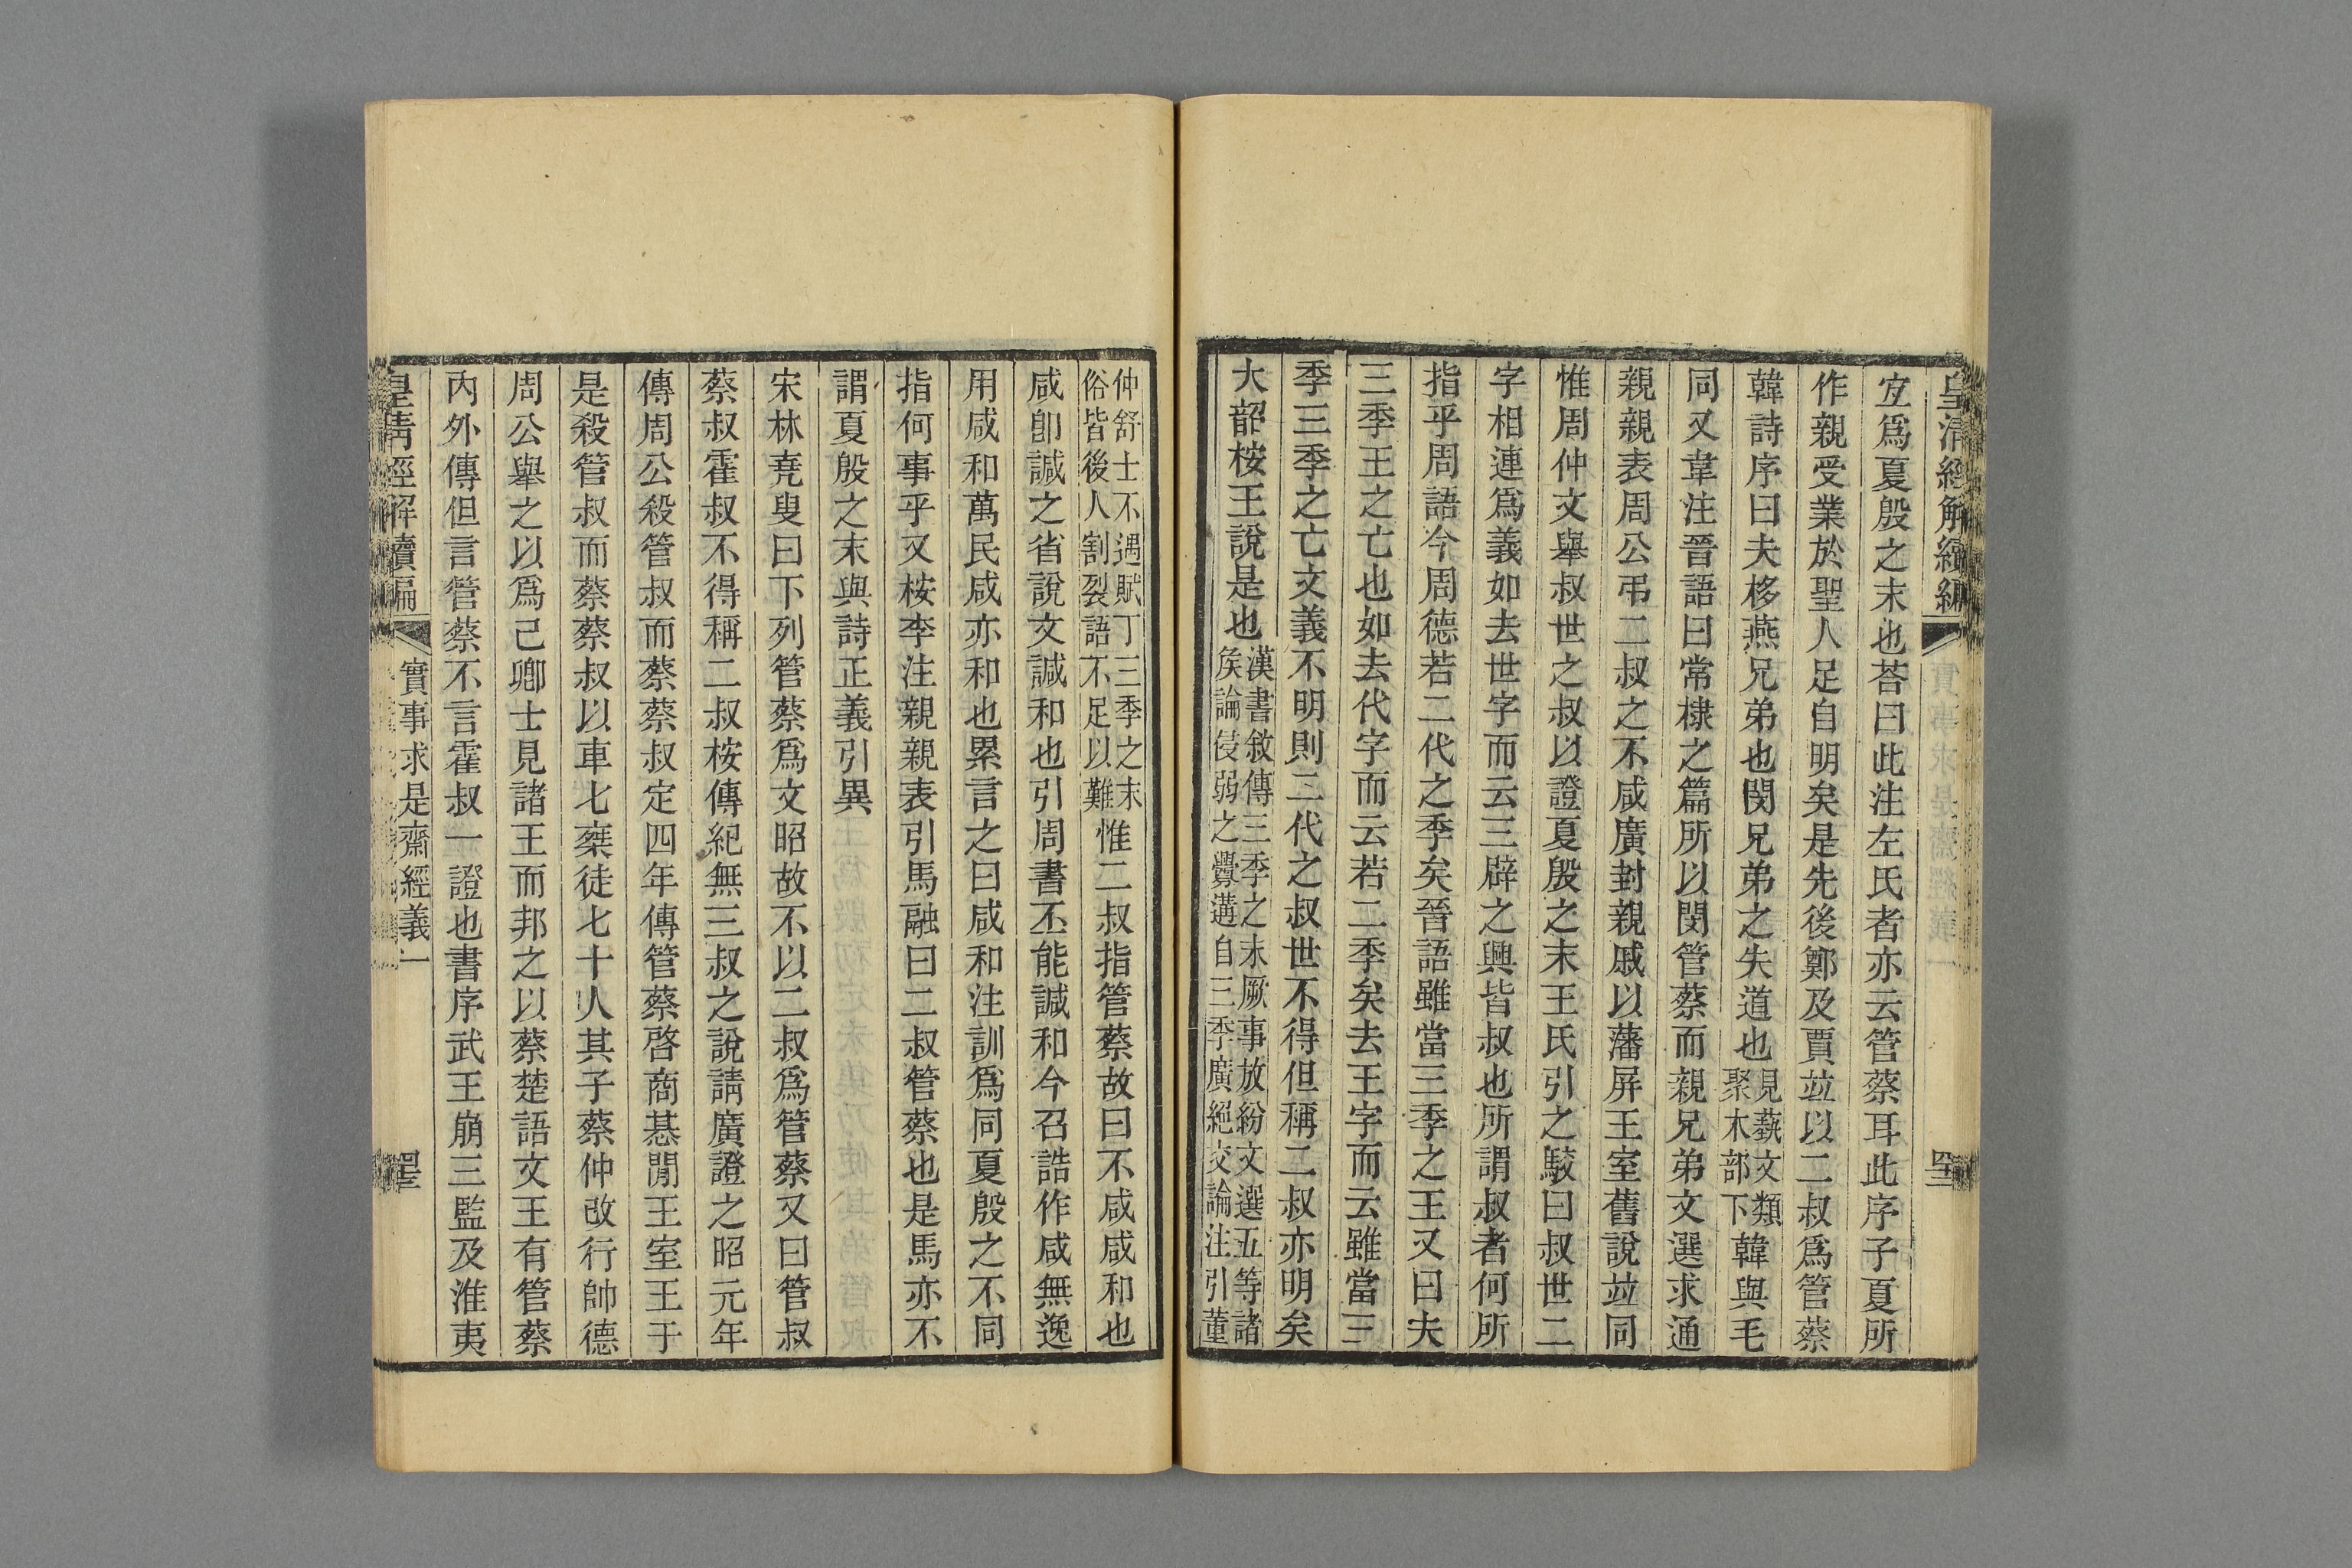 皇清經解續編
宐爲夏殷之末也荅曰此注左氏者亦云管蔡耳此序子夏所
作親受業於聖人足自明矣是先後鄭及賈竝以二叔爲管蔡
韓詩序曰夫栘燕兄弟也閔兄弟之失道也見藝文類聚木部下韓與毛
同又韋注晉語曰常棣之篇所以閔管蔡而親兄弟文選求通
親親表周公弔二叔之不咸廣封親戚以藩屏王室舊說竝同
惟周仲文舉叔世之叔以證夏殷之末王氏引之駮曰叔世二
字相連爲義如去世字而云三辟之興皆叔也所謂叔者何所
指乎周語今周德若二代之季矣晉語雖當三季之王又曰夫
三季王之亡也如去代字而云若二季矣去王字而云雖當三
季三季之亡文義不明則二代之叔世不得但稱二叔亦明矣
大韶桉王說是也漢書敘傳三季之末厥事放紛文選五等諸矦論侵弱之釁遘自三季廣絕交論注引董
仲舒士不遇賦丁三季之末俗皆後人割裂語不足以難惟二叔指管蔡故曰不咸咸和也
咸卽諴之省說文諴和也引周書丕能諴和今召誥作咸無逸
用咸和萬民咸亦和也累言之曰咸和注訓爲同夏殷之不同
指何事乎又桉李注親親表引馬融曰二叔管蔡也是馬亦不
謂夏殷之末與詩正義引異
宋林堯叟曰下列管蔡爲文昭故不以二叔爲管蔡又曰管叔
蔡叔霍叔不得稱二叔桉傳紀無三叔之說請廣證之昭元年
傳周公殺管叔而蔡蔡叔定四年傳管蔡啓商惎閒王室王于
是殺管叔而蔡蔡叔以車七椉徒七十人其子蔡仲改行帥德
周公舉之以爲己卿士見諸王而邦之以蔡楚語文王有管蔡
內外傳但言管蔡不言霍叔一證也書序武王崩三監及淮夷
皇清經解續編
實事求是齋經義一